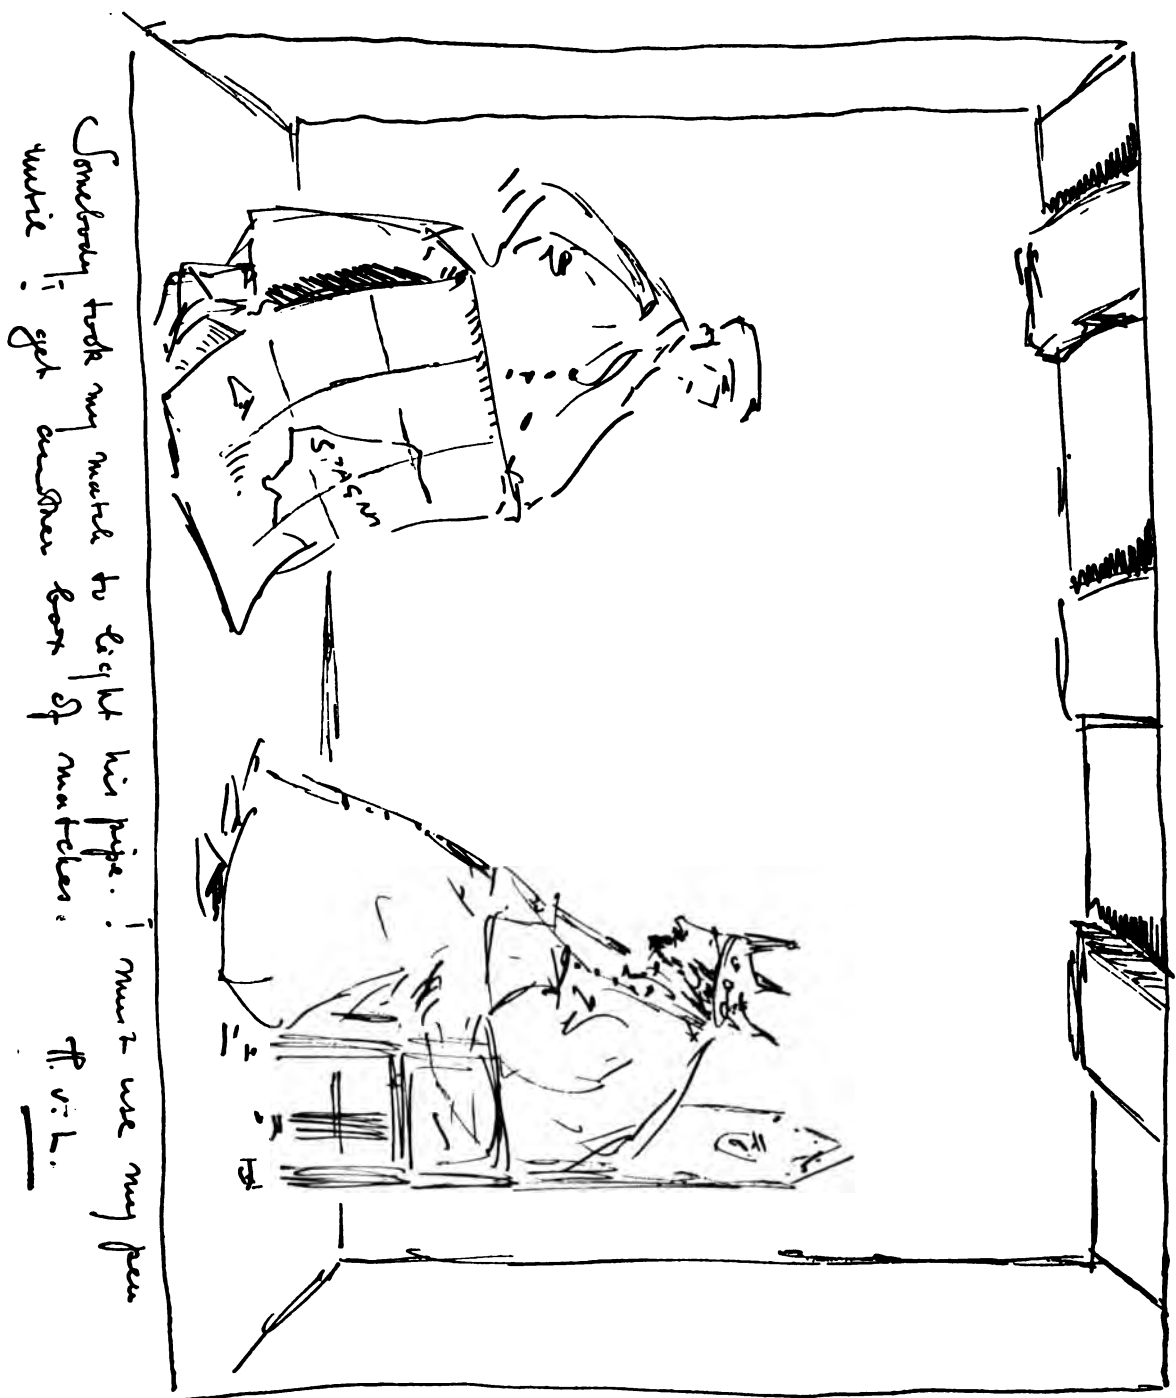 SPAGNA
Somebody took my match to light his pipe. I must use my pen
until I get another box of matches. H. v. L.